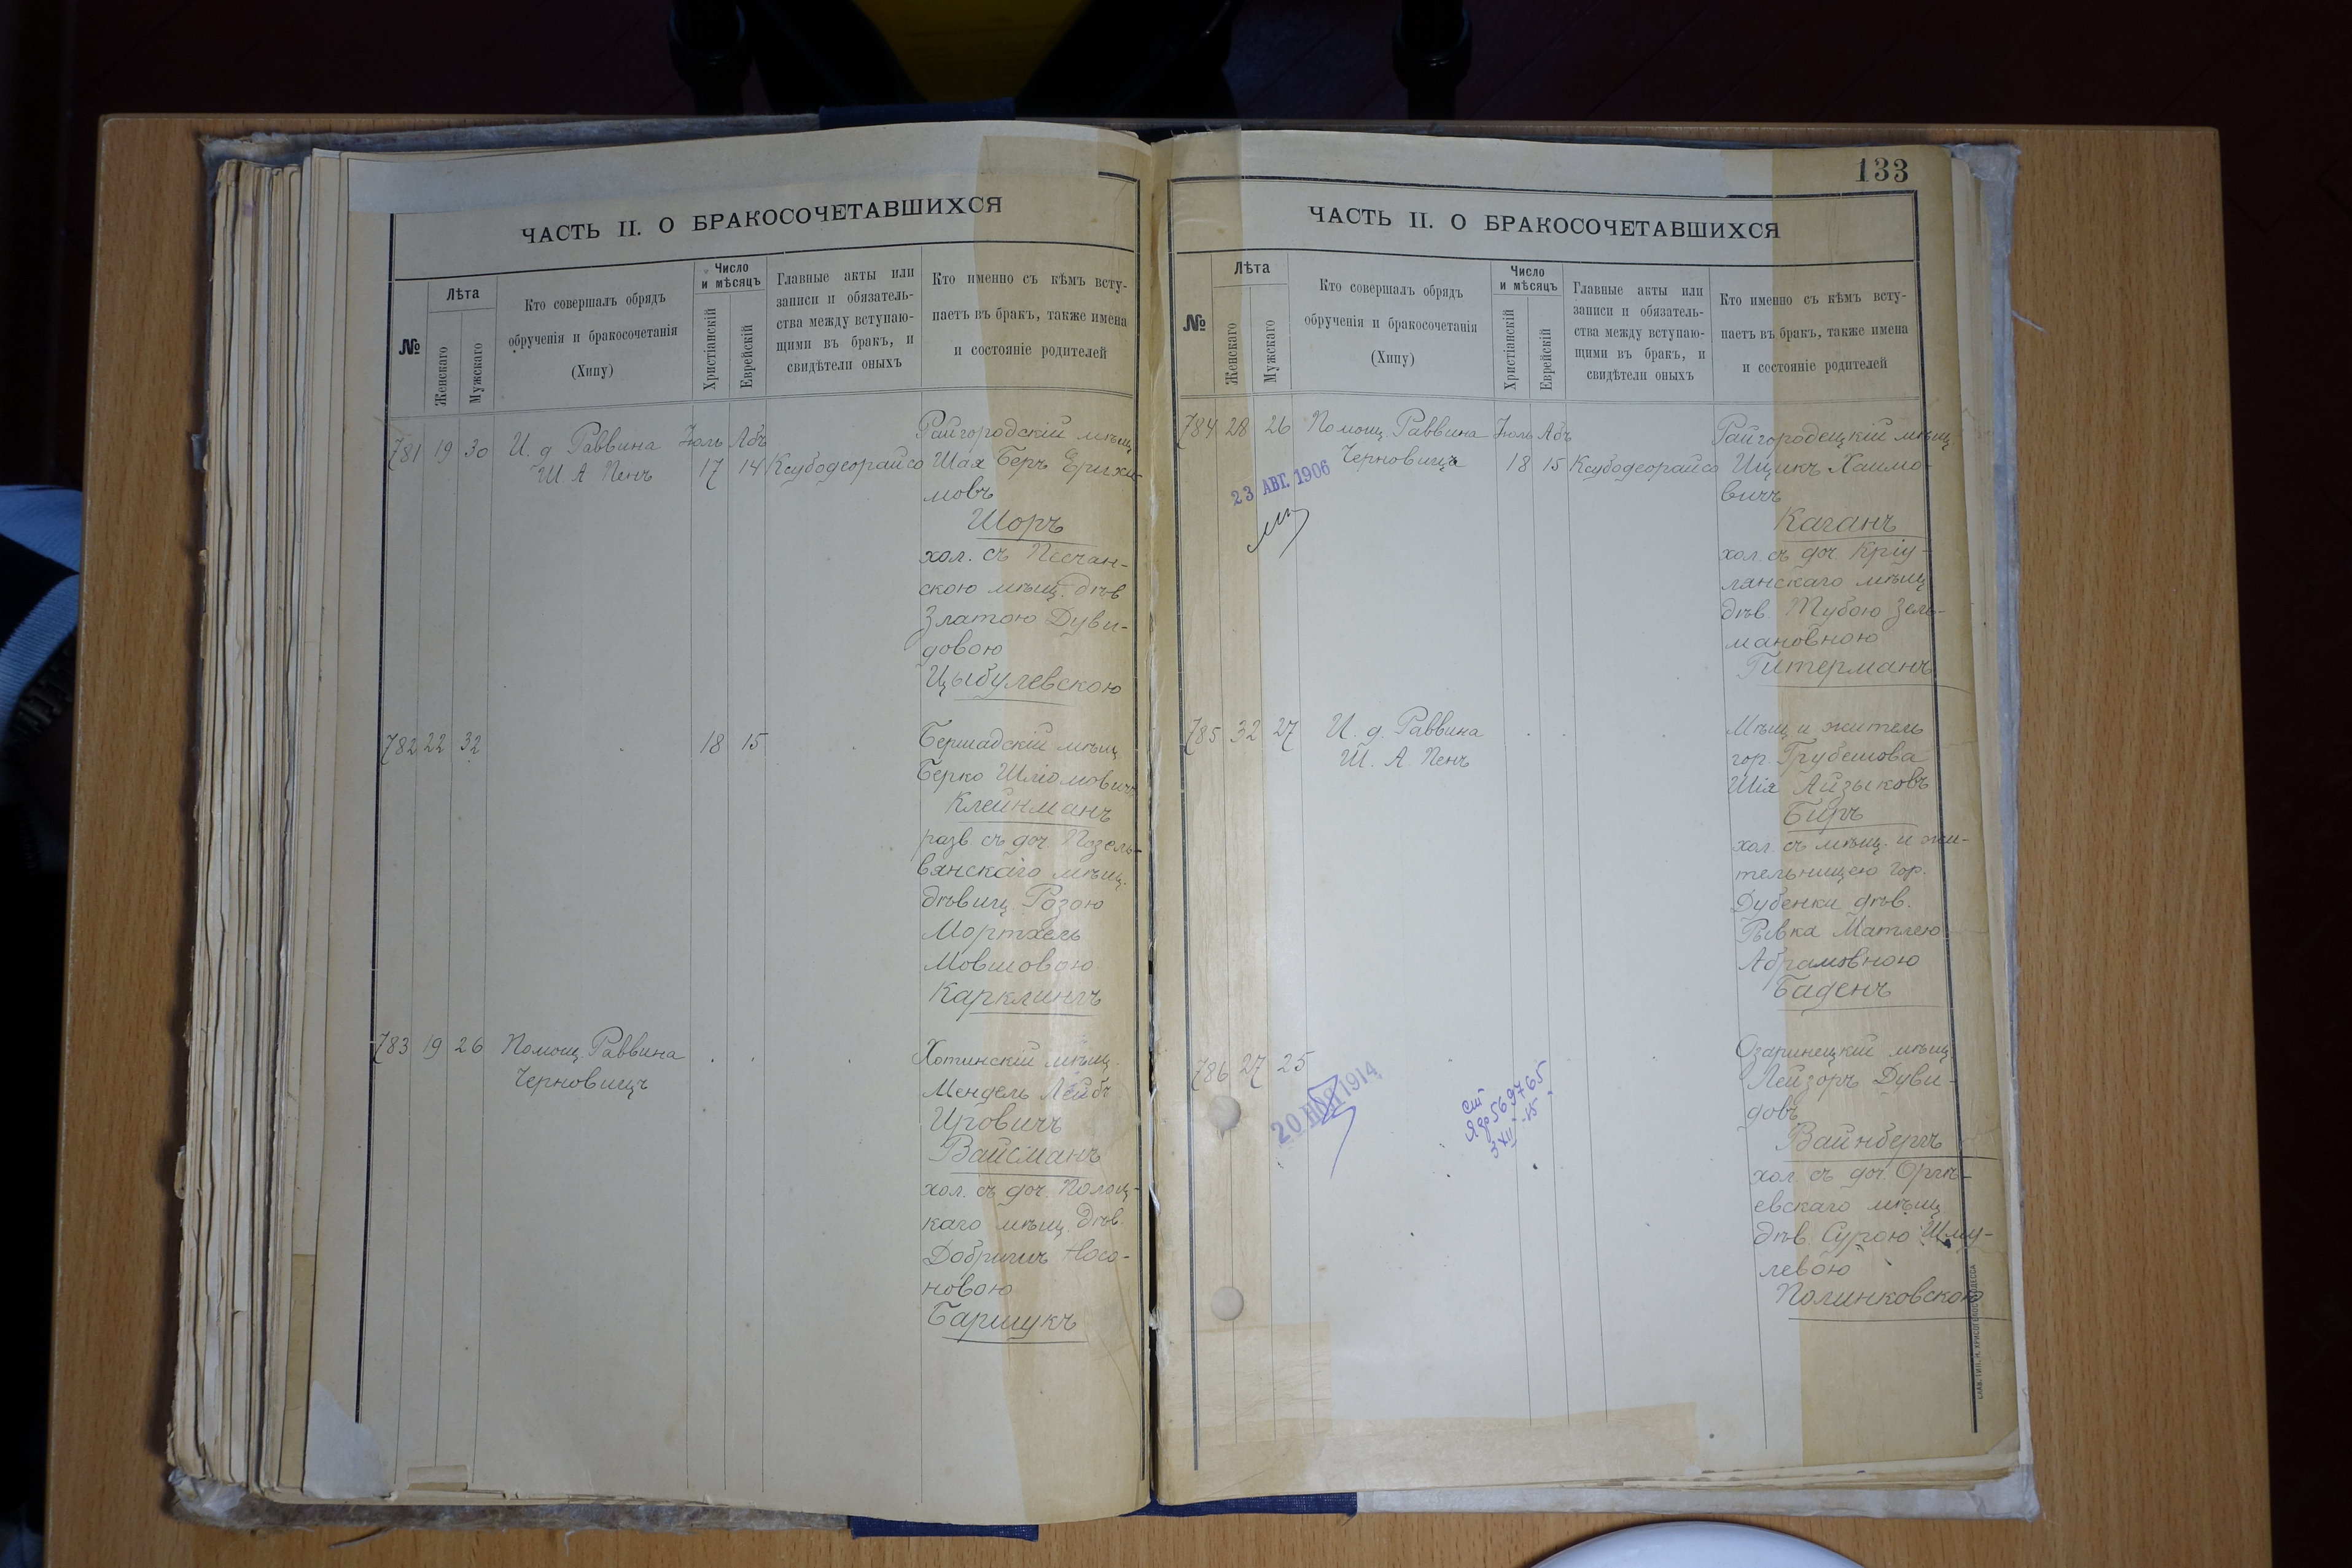 ЧАСТЬ II. О БРАКОСОЧЕТАВШИХСЯ
№
Лѣта
Женскаго
Мужскаго
Кто совершалъ обрядъ
обрученія и бракосочетанія
(Хипу)
Число
и мѣсяцъ
Христіанскій
Еврейскій
Главные акты или
записи и обязатель-
ства между вступаю-
щими въ бракъ, и
свидѣтели оныхъ
Кто именно съ кѣмъ всту-
паетъ въ бракъ, также имена
и состояніе родителей
781 19 30 И. д. Раввина Июль Абъ
Ш А Пенъ 17 14 Ксубодеорайсо
Райгородскій мѣщ
Шая Беръ Ерихи-
мовъ
Шоръ
хол. съ Песчан-
скою мѣщ. дѣв
Златою Дуви-
довою
Цыбулевскою
782 22 32 18 15
Бершадскій мѣщ
Берко Шліомовичъ
Клейнманъ
разв. съ доч. Позель-
вянскаго мѣщ.
дѣвиц Розою
Мортхель
Мовшовою
Карклингъ
783 19 26 Помощ. Раввина
Черновицъ
Хотинскій мѣщ.
Мендель Лейбъ
Ировичъ
Вайсманъ
хол. съ доч. Полоц-
каго мѣщ. дѣв.
Носо-
новою
Барщукъ
133
ЧАСТЬ II. О БРАКОСОЧЕТАВШИХСЯ
№
Лѣта
Женскаго
Мужскаго
Кто совершалъ обрядъ
обрученія и бракосочетанія
(Хипу)
Число
и мѣсяцъ
Христіанскій
Еврейскій
Главные акты или
записи и обязатель-
ства между вступаю-
щими въ бракъ, и
свидѣтели оныхъ
Кто именно съ кѣмъ всту-
паетъ въ бракъ, также имена
и состояніе родителей
784 28 26 Помощ. Раввина Июль Абъ
Черновицъ 18 15 Ксубодеорайсо
23 АВГ. 1906
Райгородецкій мѣщ
Ицикъ Хаимо-
вичъ
Каганъ
хол. съ доч. Кріу-
лянскаго мѣщ
дѣв. Тубою Зель-
мановною
Гитерманъ
785 32 27 И. д. Раввина
Ш. А. Пенъ
Мѣщ и житель
гор. Грубешова
Шія Айзыковъ
Биръ
хол. съ мѣщ. и жи-
тельницею гор.
Дубенки дѣв.
Рывка Матлею
Абрамовною
Баденъ
786 27 25
20 НОЯ 1914
569765
3 XII -15
Озаринецкій мѣщ
Лейзоръ Дуви-
довъ
Вайнбергъ
хол. съ доч. Оргѣ-
евскаго мѣщ
дѣв. Сурою Шму-
левою
Полинковскою